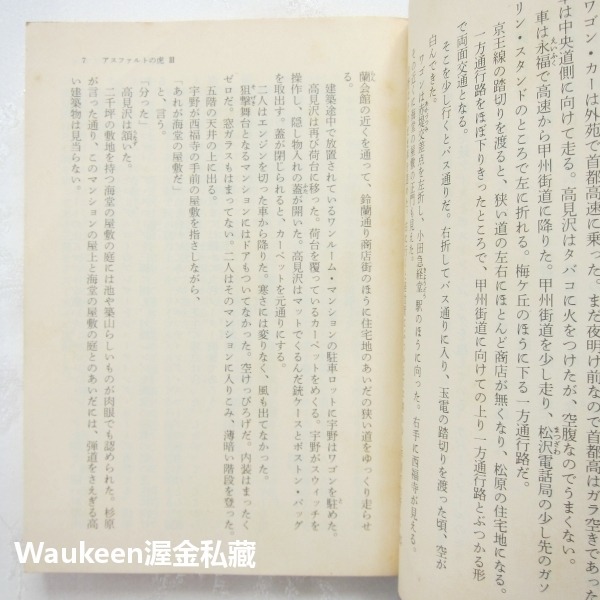 ワゴン・カーは外苑で首都高速に乗った。まだ夜明け前なので首都高はガラ空きであった
車は中央道側に向けて走る。高見沢はタバコに火をつけたが、空腹なのでうまくない。
車は永福で高速から甲州街道に降りた。甲州街道を少し走り、松沢電話局の少し先のガソ
リン・スタンドのところで左に折れる。梅ケ丘のほうに下る一方通行路だ。
京王線の踏切りを渡ると、狭い道の左右にほとんど商店が無くなり、松原の住宅地になる。
一方通行路をほぼ下りきったところで、甲州街道に向けての上り一方通行路とぶつかる形
で両面交通となる。
そこを少し行くとバス通りだ。右折してバス通りに入り、玉電の踏切りを渡った頃、空が
白んできた。
交差点を左折し、小田急経堂駅のほうに向った。右手に西福寺が見える。
7 アスファルトの虎 Ⅲ
蘭会館の近くを通って、鈴蘭通り商店街のほうに住宅地のあいだの狭い道をゆっくり走らせ
る。
建築途中で放置されているワンルーム・マンションの駐車ロットに宇野はワゴンを駐めた。
高見沢は再び荷台に移った。荷台を覆っているカーペットをめくる。宇野がスウィッチを
操作し、隠し物入れの蓋が開いた。高見沢はマットでくるんだ銃ケースとボストン・バッグ
を取出す。蓋が閉じられると、カーペットを元通りにする。
二人はエンジンを切った車から降りた。寒さには変りなく、風も出てなかった。
狙撃舞台となるマンションにはドアもついてなかった。空けっぴろげだ。内装はまったく
ゼロだ。窓ガラスもはまってない。二人はそのマンションに入りこみ、薄暗い階段を登った。
五階の天井の上に出る。
宇野が西福寺の手前の屋敷を指さしながら、
「あれが海堂の屋敷だ」
と、言う。
「分った」
高見沢は頷いた。
二千坪の敷地を持つ海堂の屋敷の庭には池や築山らしいものが肉眼でも認められた。杉原
が言った通り、このマンションの屋上と海堂の屋敷の庭とのあいだには、弾道をさえぎる高
い建築物は見当らない。
Waukeen渥金私藏